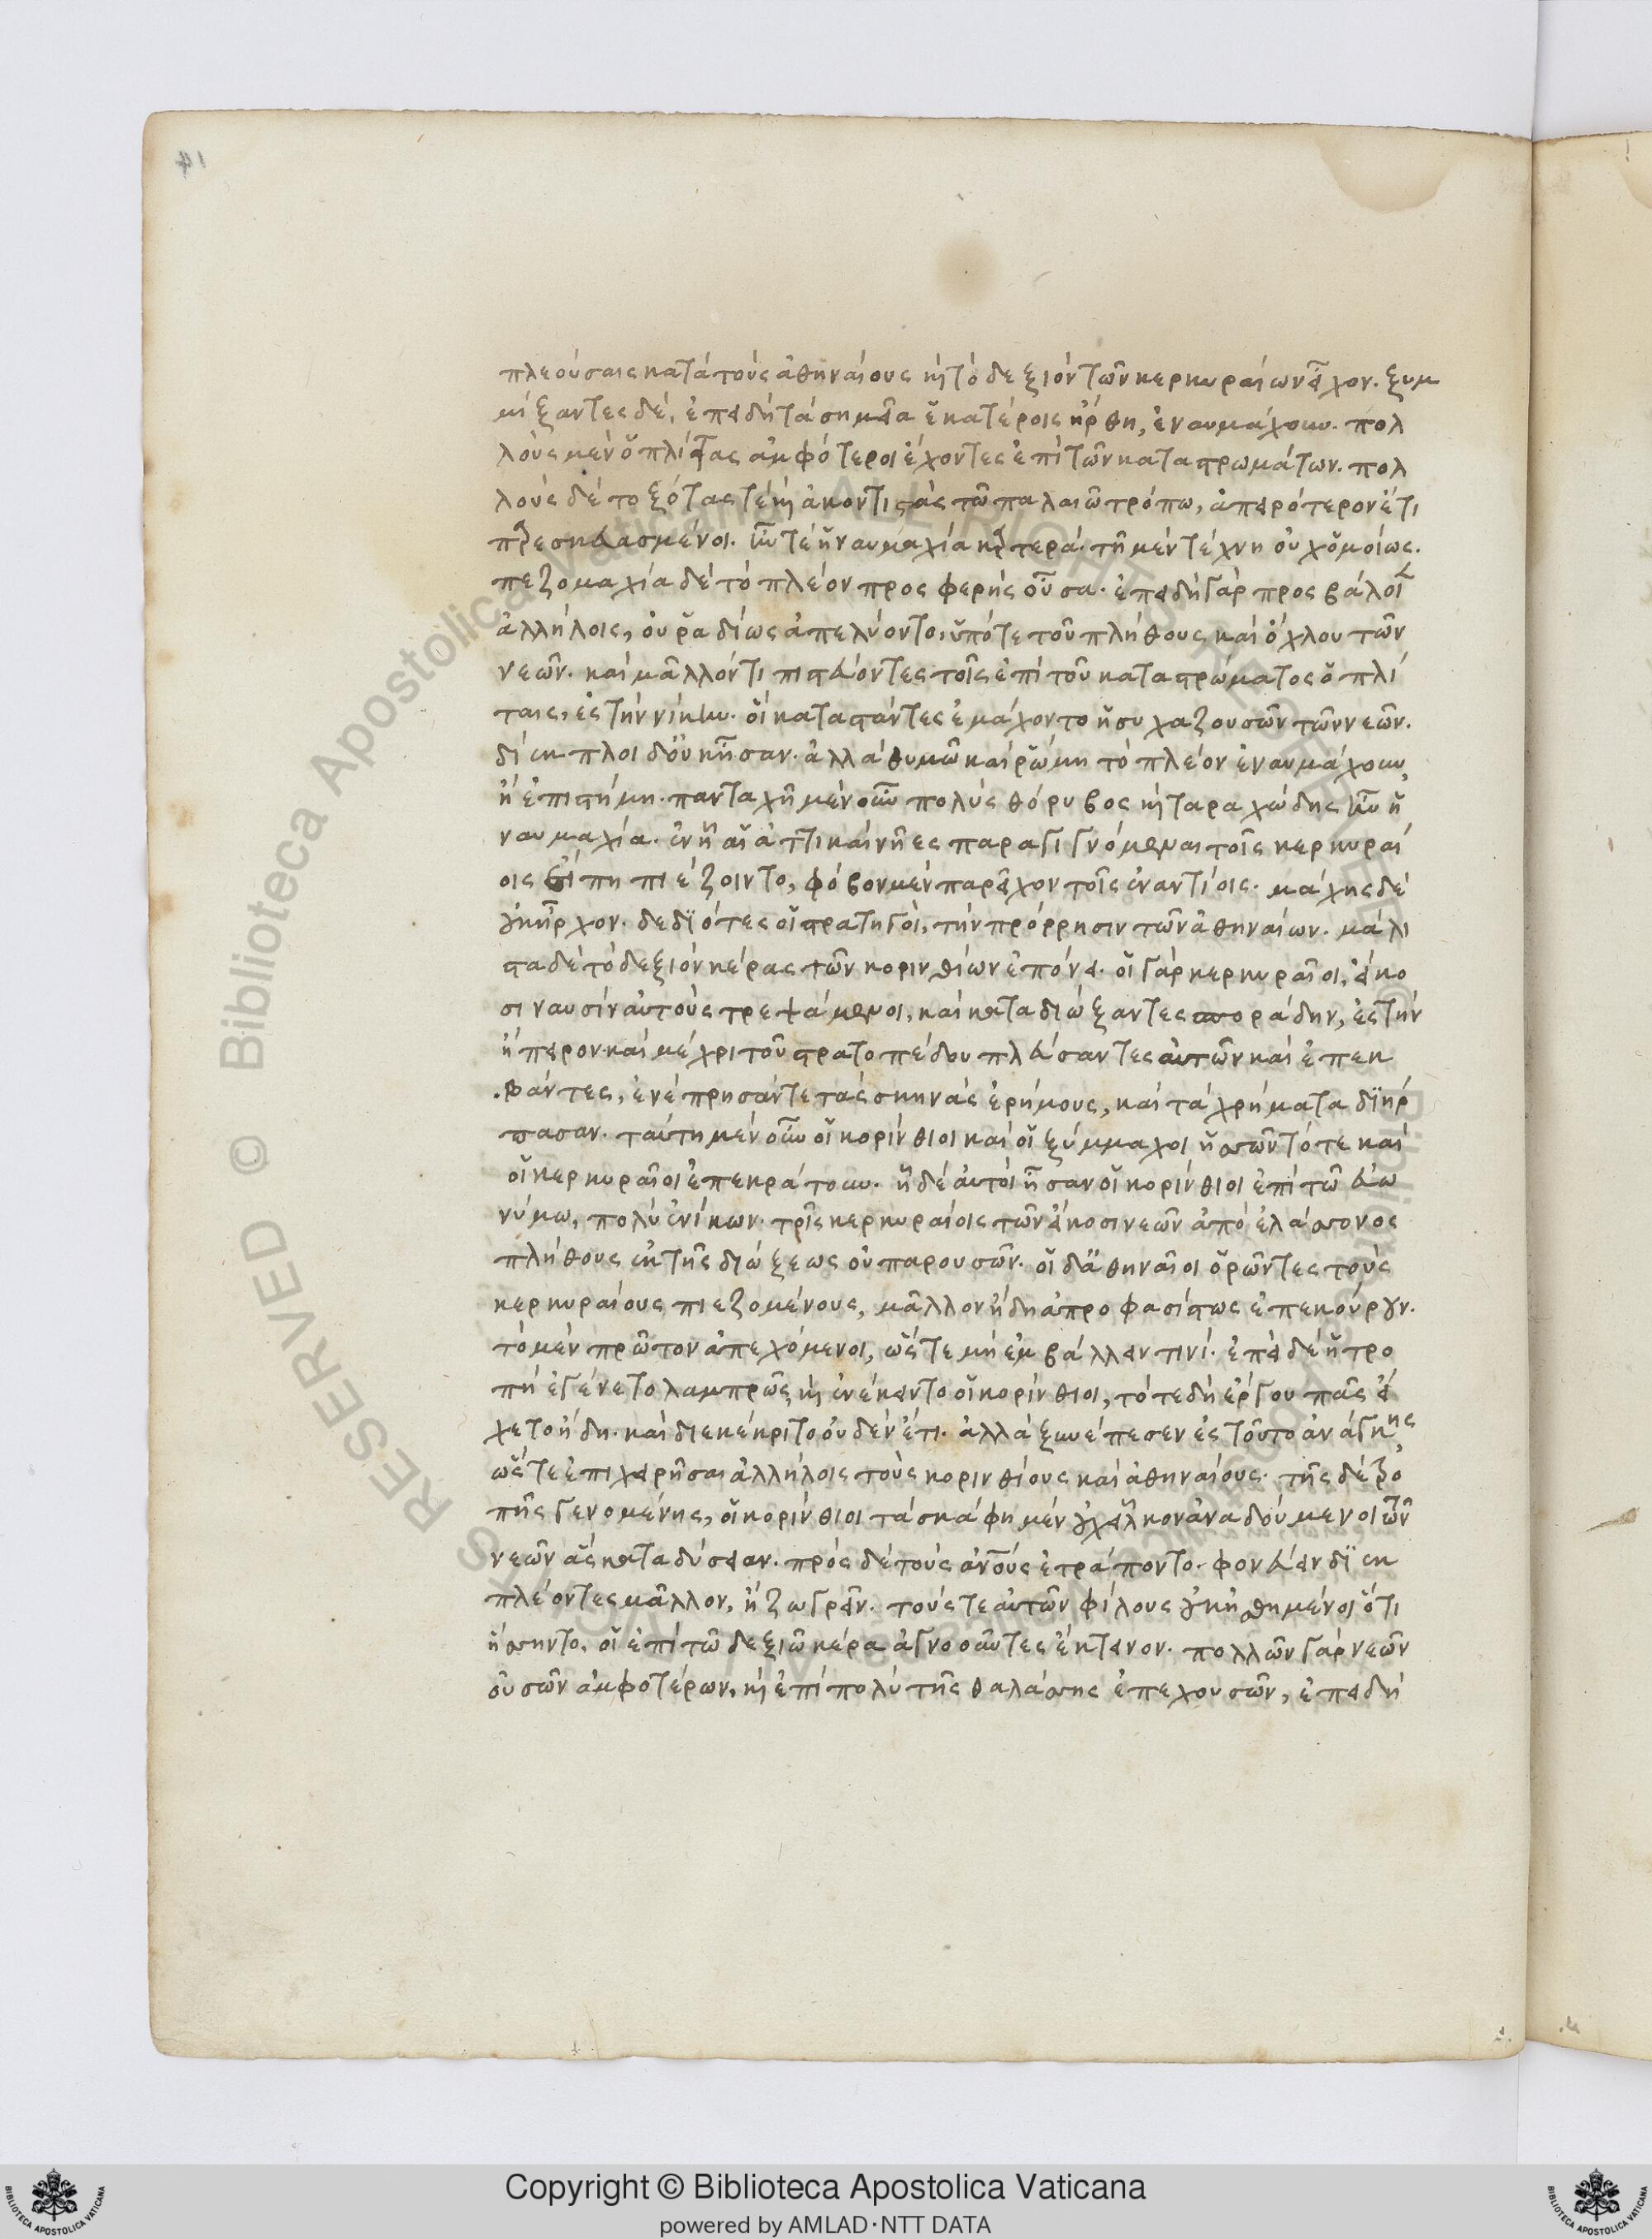 πλεούσαις κατὰ τοὺς ἀθηναίους καὶ τὸ δεξιὸν τῶν κερκυραίων εἶχον. ξυμ
μίξαντες δὲ, ἐπειδὴ τὰ σημεῖα ἑκατέροις ἤρθη, ἐναυμάχουν. πολ
λοὺς μὲν ὁπλίτας ἀμφότεροι ἔχοντες ἐπὶ τῶν καταστρωμάτων. πολ
λοὺς δὲ τοξότας τὲ καὶ ἀκοντιστὰς τῶ παλαιῶ τρόπω, ἀπειρότερον ἔτι
παρεσκευασμένοι. ἦν τὲ ἡ ναυμαχία καρτερά. τῆ μὲν τέχνη οὐχ ὁμοίως.
πεζομαχία δὲ τὸ πλέον προσφερὴς οὖσα. ἐπειδὴ γὰρ προσβάλοιεν
ἀλλήλοις, οὐ ῥαδίως ἀπελύοντο, ὑπό τε τοῦ πλήθους καὶ ὄχλου τῶν
νεῶν. καὶ μᾶλλόν τι πιστεύοντες τοῖς ἐπὶ τοῦ καταστρώματος ὁπλί
ταις, ἐς τὴν νίκην. οἳ καταστάντες ἐμάχοντο ἡσυχαζουσῶν τῶν νεῶν.
διέκπλοι δ' οὐκ ἦσαν. ἀλλὰ θυμῶ καὶ ῥώμη τὸ πλέον ἐναυμάχουν,
ἢ ἐπιστήμη. πανταχῆ μὲν οὖν πολὺς θόρυβος καὶ ταραχώδης ἦν ἡ
ναυμαχία. ἐν ἧ αἱ ἀττικαὶ νῆες παραγιγνόμεναι τοῖς κερκυραί
οις εἴ πη πιέζοιντο, φόβον μὲν παρεῖχον τοῖς ἐναντίοις. μάχης δὲ
οὐκ ἦρχον. δεδιότες οἱ στρατηγοὶ, τὴν πρόρρησιν τῶν ἀθηναίων. μάλι
στα δὲ τὸ δεξιὸν κέρας τῶν κορινθίων ἐπόνει. οἱ γὰρ κερκυραῖοι, εἴκο
σι ναυσὶν αὐτοὺς τρεψάμενοι, καὶ καταδιώξαντες σποράδην, ἐς τὴν
ἤπειρον. καὶ μέχρι τοῦ στρατοπέδου πλεύσαντες αὐτῶν καὶ ἐπεκ
βάντες, ἐνέπρησάν τε τὰς σκηνὰς ἐρήμους, καὶ τὰ χρήματα διήρ
πασαν. ταύτη μὲν οὖν οἱ κορίνθιοι καὶ οἱ ξύμμαχοι ἡσσῶντό τε καὶ
οἱ κερκυραῖοι ἐπεκράτουν. ἧ δὲ αὐτοὶ ἦσαν οἱ κορίνθιοι ἐπὶ τῶ εὐω
νύμω, πολὺ ἐνίκων. τοῖς κερκυραίοις τῶν εἴκοσι νεῶν ἀπὸ ἐλάσσονος
πλήθους ἐκ τῆς διώξεως οὐ παρουσῶν. οἱ δ' ἀθηναῖοι ὁρῶντες τοὺς
κερκυραίους πιεζομένους, μᾶλλον ἤδη ἀπροφασίστως ἐπεκούρουν.
τὸ μὲν πρῶτον ἀπεχόμενοι, ὥστε μὴ ἐμβάλλειν τινί. ἐπεὶ δὲ ἡ τρο
πὴ ἐγένετο λαμπρῶς, καὶ ἐνέκειντο οἱ κορίνθιοι, τότε δὴ ἔργου πᾶς εἴ
χετο ἤδη. καὶ διεκέκριτο οὐδὲν ἔτι. ἀλλὰ ξυνέπεσεν ἐς τοῦτο ἀνάγκης,
ὥστε ἐπιχειρῆσαι ἀλλήλοις τοὺς κορινθίους καὶ ἀθηναίους. τῆς δὲ τρο
πῆς γενομένης, οἱ κορίνθιοι τὰ σκάφη μὲν οὐχ εἷλκον ἀναδούμενοι τῶν
νεῶν ἃς καταδύσειαν. πρὸς δὲ τοὺς ἀνθρώπους ἐτράποντο. φονεύειν διεκ
πλέοντες μᾶλλον, ἢ ζωγρεῖν. τούς τε αὐτῶν φίλους οὐκ ἠσθημένοι ὅτι
ἥσσηντο, οἱ ἐπὶ τῶ δεξιῶ κέρα ἀγνοοῦντες ἔκτεινον. πολλῶν γὰρ νεῶν
οὐσῶν ἀμφοτέρων, καὶ ἐπὶ πολὺ τῆς θαλάσσης ἐπεχουσῶν, ἐπειδὴ
Copyright © Biblioteca Apostolica Vaticana
powered by AMLAD·NTT DATA